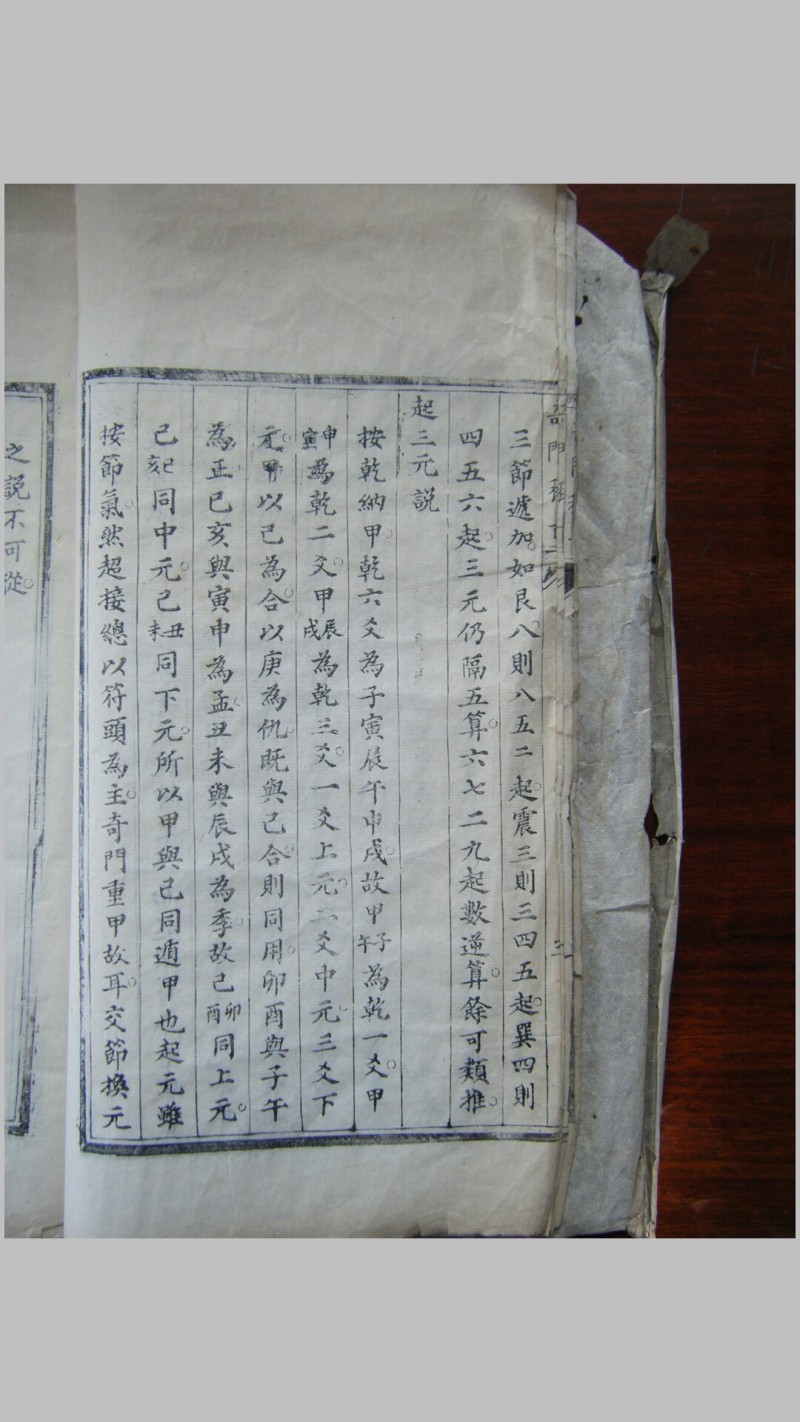 三節遞加如艮八則八五二起震三則三四五起巽四則
四五六起三元仍隔五算六七二九起數逆算餘可類推
起三元說
按乾納甲乾六爻為子寅辰午申戌故甲午子為乾一爻甲
寅申為乾二爻甲戌辰為乾三爻一爻上元二爻中元三爻下
元甲以己為合以庚為仇既與己合則同用卯酉與子午
為正巳亥與寅申為孟丑未與辰戌為季故己酉卯同上元
己亥巳同中元己未丑同下元所以甲與己同遁甲也起元雖
按節氣然超接總以符頭為主奇門重甲故耳交節換元
之說不可從